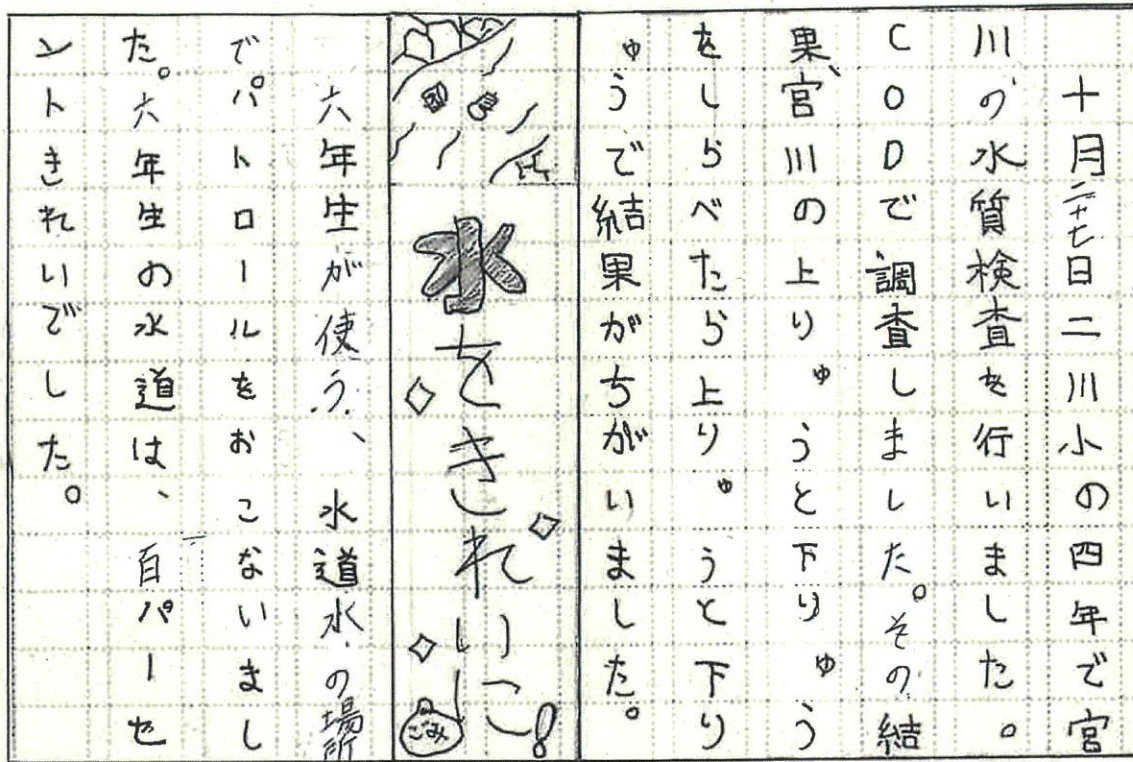 十月二十七日二川小の四年で宮
川の水質検査を行いました。
CODで調査しました。その結
果、宮川の上りゅうと下りゅう
をしらべたら上りゅうと下り
ゅうで結果がちがいました。
水をきれいに!
ごみ
六年生が使う、水道水の場所
でパトロールをおこないまし
た。六年生の水道は、百パーセ
ントきれいでした。